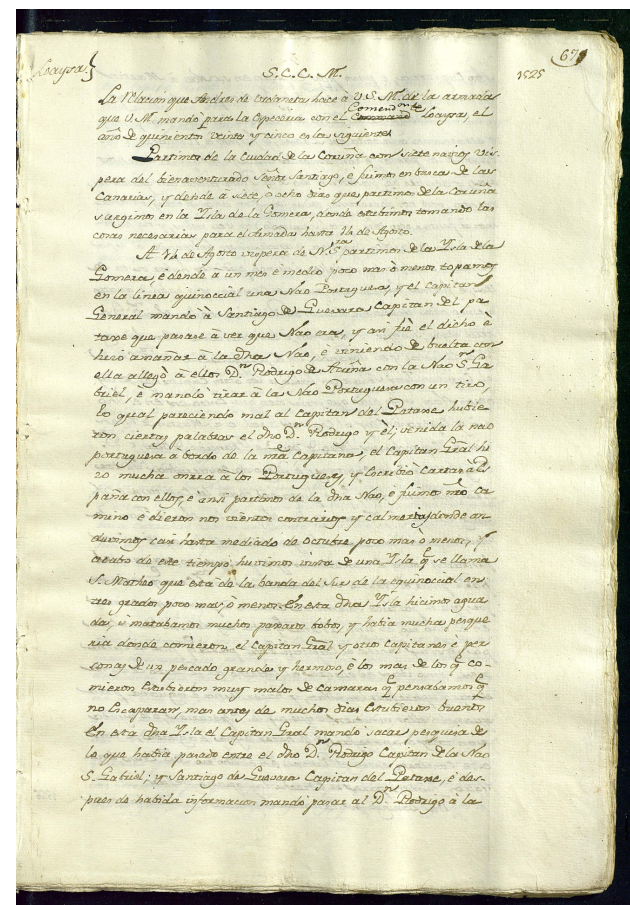 Loaysa.}
67
S. C. C. M.
1525
La relacion que Andres de Urdaneta hace à V. S. M. de la armada
que V. M. mandó para la Especeria con el Comendor Loaysa, el
año de quinientos veinte y cinco es la siguiente
Partimos de la Ciudad de la Coruña con siete navios vis-
pera del bienaventurado Señor Santiago, è fuimos en busca de las
Canarias, y dende à siete, ò ocho dias que partimos de la Coruña
surgimos en la Ysla de la Gomera, donde estubimos tomando las
cosas necesarias para el Armada hasta 14 de Agosto.
A 14 de Agosto vispera de N. Sra. partimos de la Ysla de la
Gomera, è dende à un mes è medio poco mas ò menos topamos
en la linea equinoccial una Nao Portuguesa, y el Capitan
General mandò à Santiago de Guevara Capitan del pa-
taxe que pasase à ver que Nao era, y ansi fuè el dicho è
hizo amainar à la dha Nao, è viniendo de buelta con
ella allegò à ellos Dn. Rodrigo de Acuña con la Nao Sn. Ga-
briel, è mandò tirar à la Nao Portuguesa con un tiro,
lo qual pareciendo mal al Capitan del Pataxe hubie-
ron ciertas palabras el dho Dn. Rodrigo y èl; venida la nao
portuguesa à bordo de la nra Capitana, el Capitan Gral hi-
zo mucha onrra à los Portugueses, y escribió Cartas à Es-
paña con ellos, è ansi partimos de la dha Nao, è fuimos nro ca-
mino è dieron nos vientos contrarios y calmerias donde an-
duvimos casi hasta mediado de Octubre poco mas ò menos, y
acabo de este tiempo huvimos vista de una Ysla q se llama
S. Matheo que esta de la banda del Sur de la equinoccial en
tres grados poco mas, ò menos. En esta dha Ysla hicimos agua-
da, è matabamos muchos paxaros bobos, y habia mucha pesque-
ria donde comieron el Capitan Gral y otros Capitanes è per-
sonas de un pescado grande y hermoso, è los mas de los q co-
mieron estubieron muy malos de camaras q pensabamos q
no escaparan, mas antes de muchos dias estubieron buenos
En esta dha Ysla el Capitan Gral mandò sacar pesquisa de
lo que habia pasado entre el dho Dn. Rodrigo Capitan de la Nao
S. Gabriel; y Santiago de Guevara Capitan del Pataxe, è des-
pues de habida informacion mandò pasar al Dn. Rodrigo à la